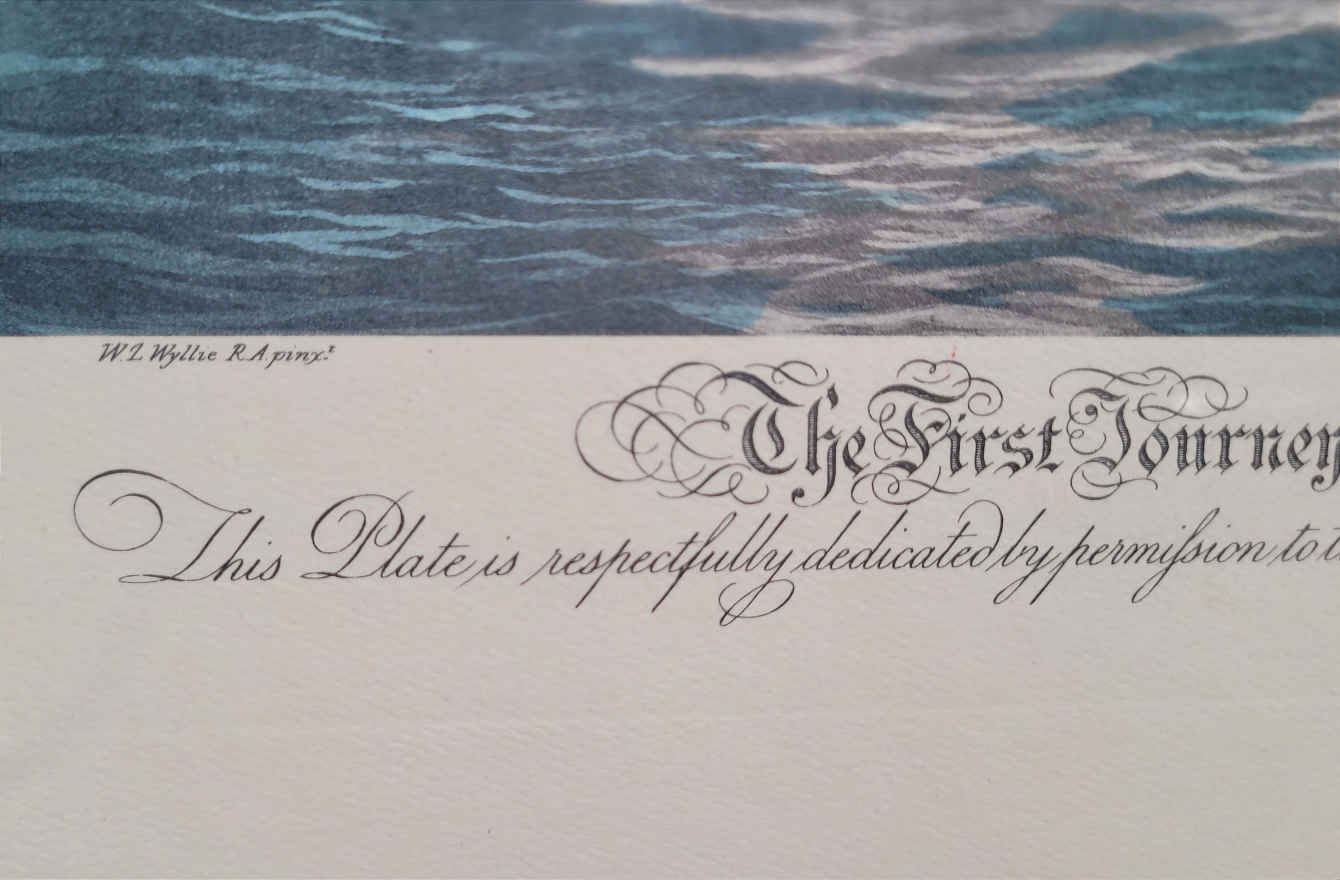 W L Wyllie R.A. pinx.t
The First Journey
This Plate is respectfully dedicated by permiſsion to